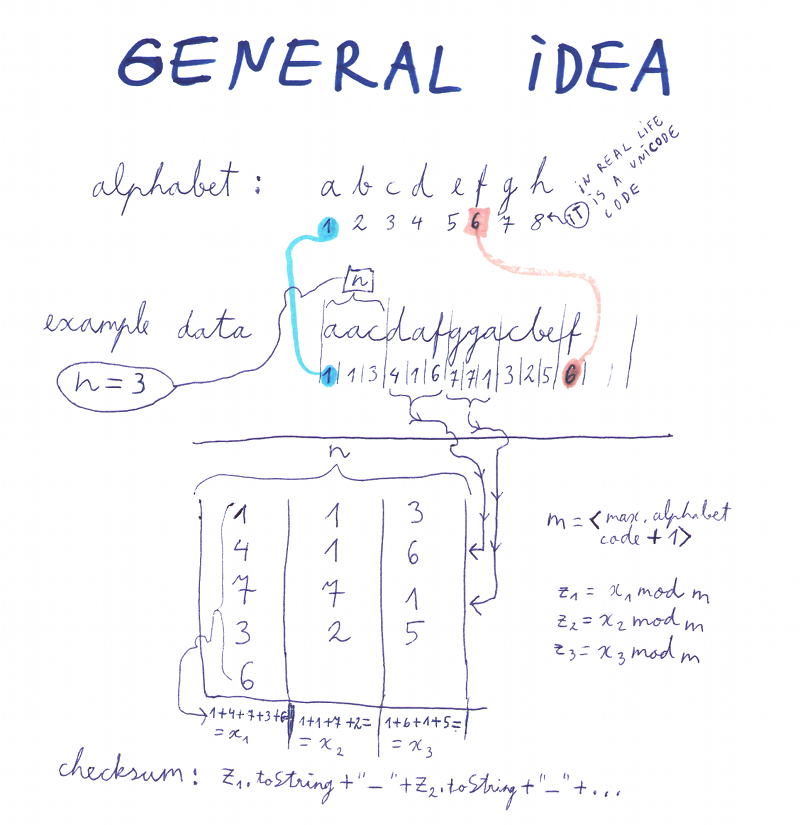 GENERAL iDEA
alphabet: a b c d e f g h
1 2 3 4 5 6 7 8 ← iT
iN REAL LIFE
iS A UNICODE
CODE
n
example data aacdafggacbef
n = 3
1|1|3|4|1|6|7|7|1|3|2|5|6
n
1 1 3
4 1 6
7 7 1
3 2 5
6
1+4+7+3+6 = x₁
1+1+7+2= = x₂
1+6+1+5= = x₃
m = <max. alphabet
code + 1>
z₁ = x₁ mod m
z₂ = x₂ mod m
z₃ = x₃ mod m
checksum: z₁.toString+"_"+z₂.toString+"_"+...